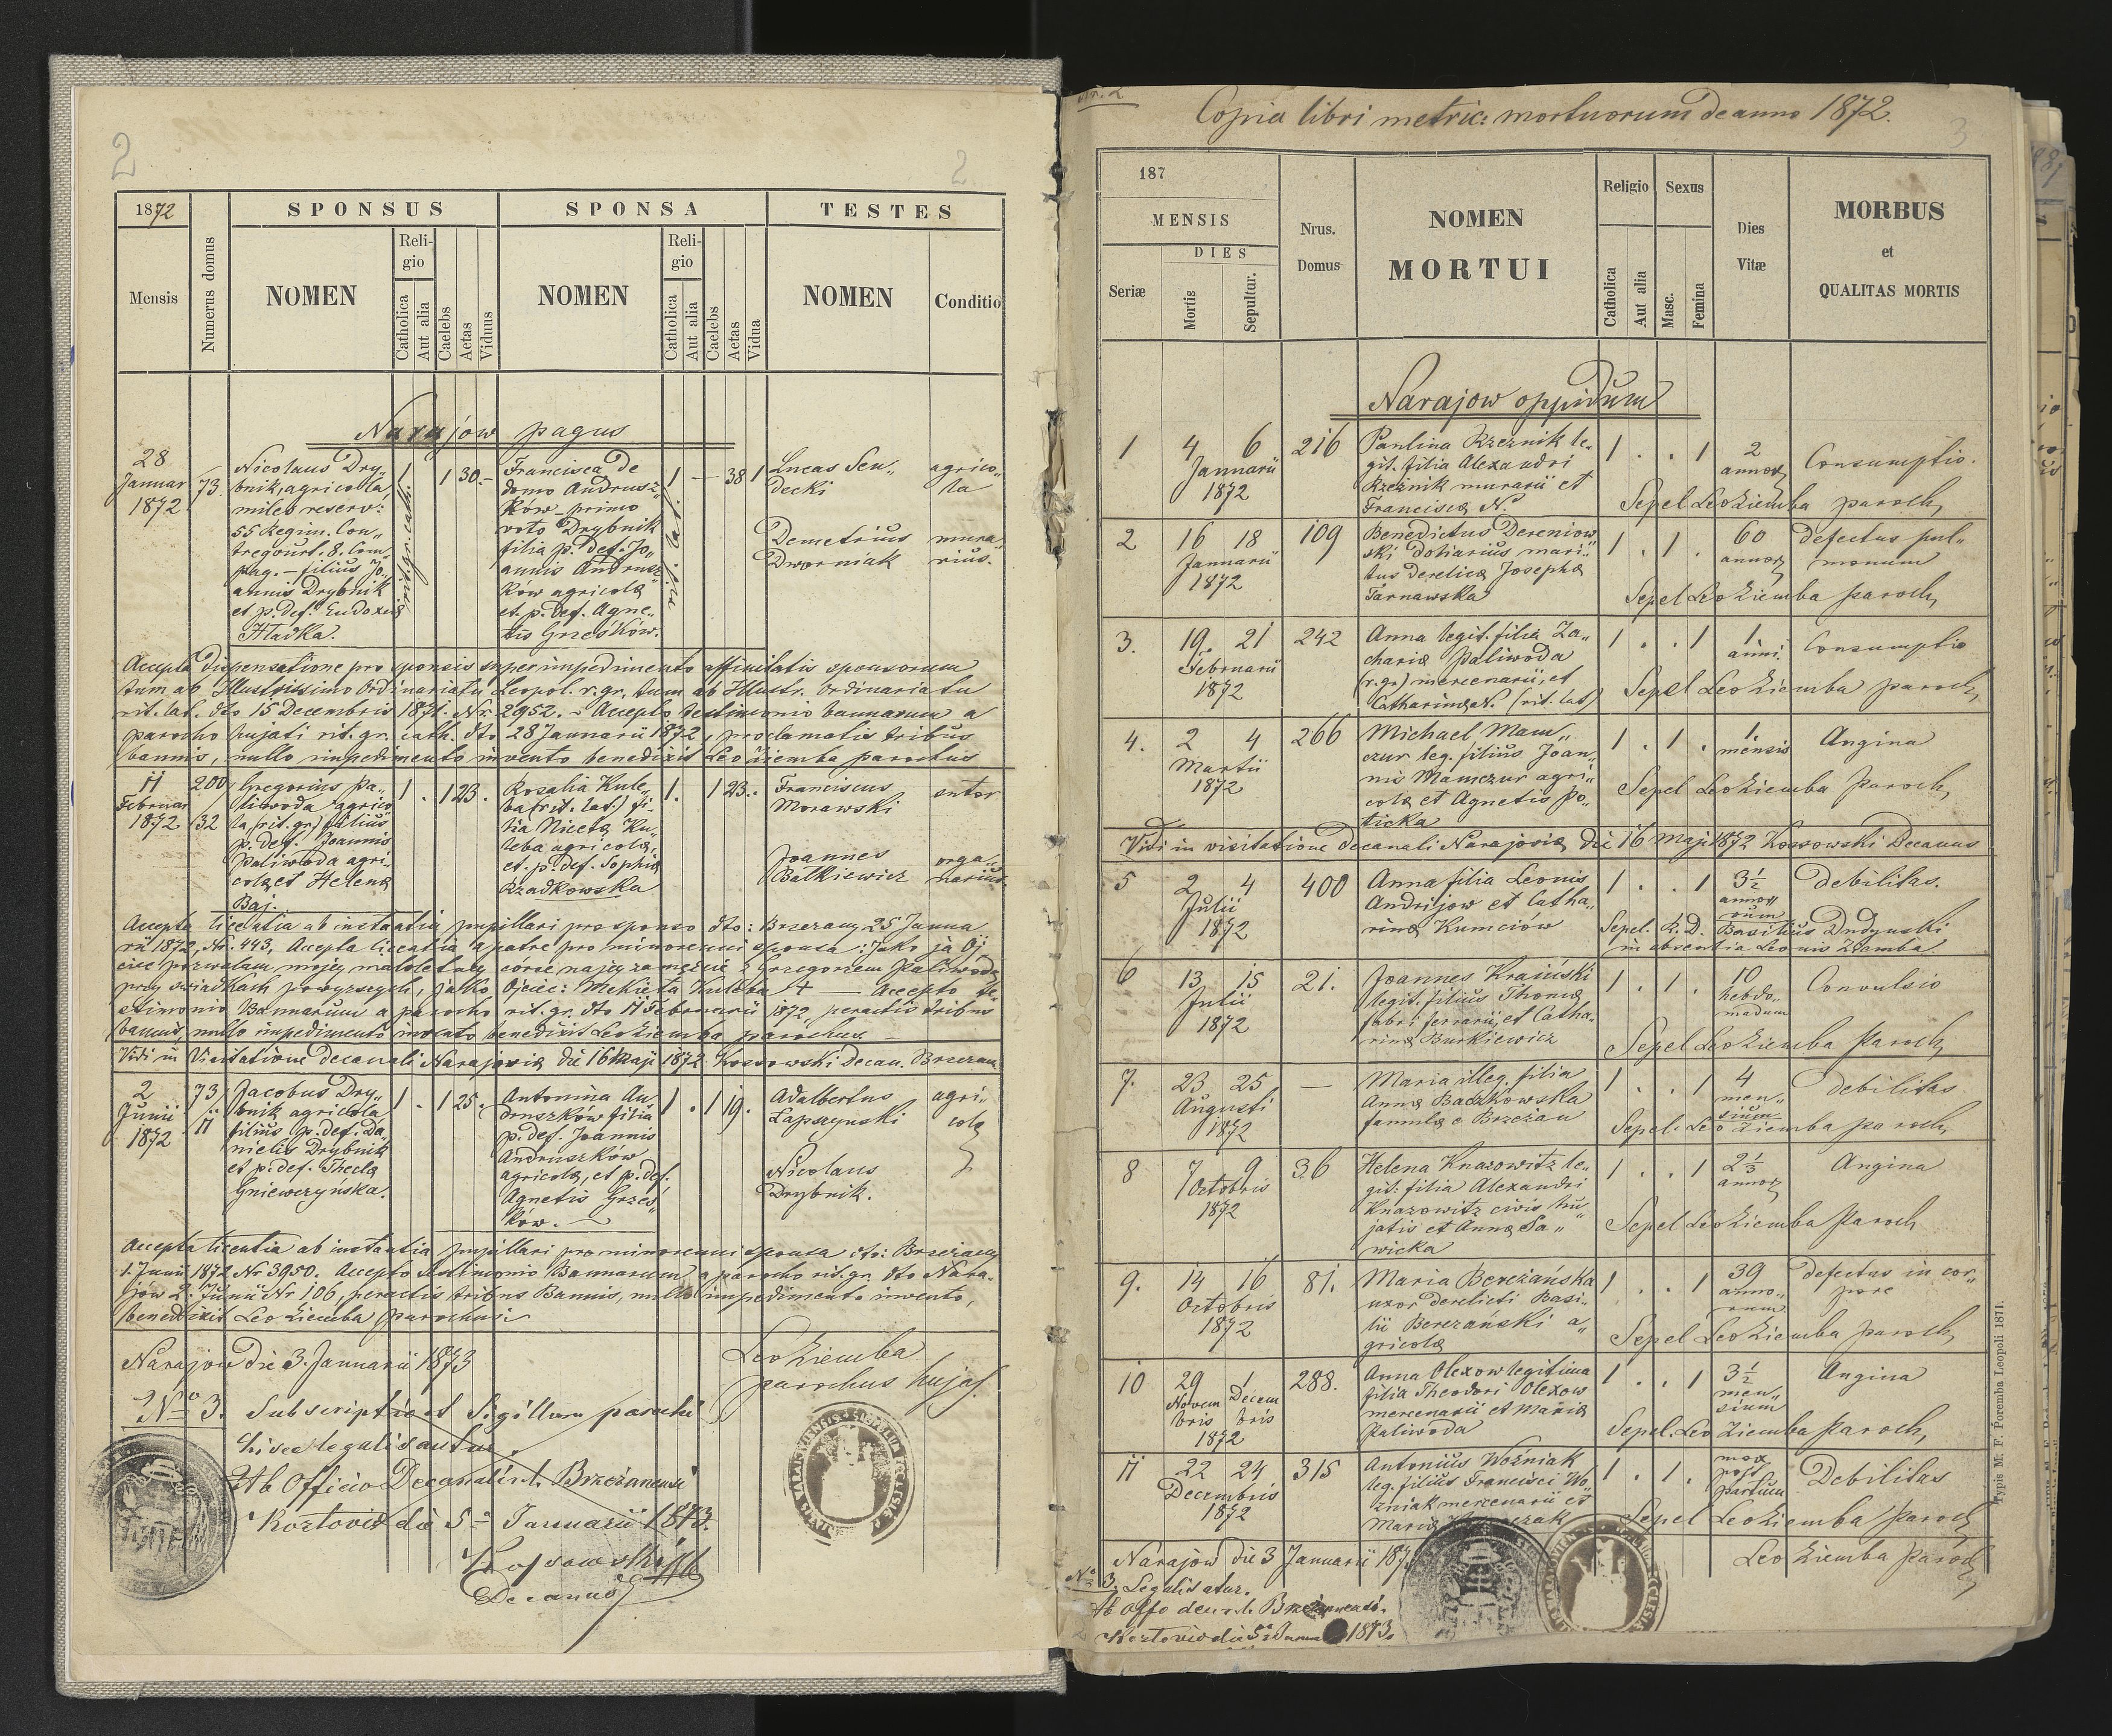 2
2
1872
SPONSUS
SPONSA
TESTES
Mensis
Numerus domus
NOMEN
Religio
Catholica
Aut alia
Caelebs
Aetas
Viduus
NOMEN
Religio
Catholica
Aut alia
Caelebs
Aetas
Vidua
NOMEN
Conditio
Narajów pagus
28
Januar
1872
73.
Nicolaus Dry„
bnik, agricola
miles reserv:
55 Regim. Con„
pag. – filius Jo„
annis Drybnik
et p. def. Eudoxiæ
Hladka.
1
rit. gr. cath.
1 30.–
Francisca de
domo Andrusz„
ków – primo
voto Drybnik
filia p. def. Jo„
annis Andrusz„
ków agricolæ
et p. def. Agne„
tis Grześków.
1
rit. lat.
– 38 1
Lucas Sen„
decki
agrico„
la
Demetrius
Dworniak
mura„
rius.
Accepta dispensatione pro sponsis super impedimento affinitatis sponsorum
tum ab Illustrissimo Ordinariatu Leopol. r. gr. tum ab Illustr. Ordinariatu
rit. lat. dto 15 Decembris 1871. Nr. 2952. – Accepto testimonio bannorum a
parocho hujati rit. gr. cath. dto 28 Januarii 1872, proclamatis tribus
bannis, nullo impedimento invento benedixit Leo Ziemba parochus
11
Februar
1872
200
32
Gregorius Pa„
liwoda agrico
la (rit. gr.) filius
p. def. Joannis
Paliwoda agri„
colæ et Helenæ
Baj.
1 . 1 23 .
Rosalia Kule„
ba (rit. lat.) fi„
lia Nicetæ Ku„
leba agricolæ,
et p. def. Sophiæ
Rzadkowska
1 . 1 23 .
Franciscus
Morawski
sutor
Joannes
Balkiewicz
orga„
narius.
Accepta licentia ab instantia pupillari pro sponso dto: Brzezany 25 Janua
rii 1872, Nr. 443, Accepta licentia a patre pro minorenni sponsa: Jako ja Oj
ciec pozwalam mojej małoletniej córce na jej zamęście z Grzegorzem Paliwodą
przy świadkach powyższych, jako Ojciec: Mekieta Kuleba + — Accepto te„
stimonio Bannorum a parocho rit. gr. dto 11 Februarii 1872, peractis tribus
bannis, nullo impedimento invento benedixit Leo Ziemba parochus. —
Vidi in Visitatione decanali Narajoviæ die 16 Maji 1872. Kossowski Decan. Brzezan
2
Junii
1872
73
11
Jacobus Dry„
bnik agricola
filius p. def. Da„
nielis Drybnik
et p. def. Theclæ
Gniewczyńska.
1 . 1 25 .
Antonina An„
druszków filia
p. def. Joannis
Andruszków
agricolæ, et p. def.
Agnetis Grześ„
ków. —
1 . 1 19 .
Adalbertus
Łapszynski
agri„
colæ
Nicolaus
Drybnik.
Accepta licentia ab instantia pupillari pro minorenni sponsa dto: Brzeżany
1. Junii 1872 Nr 3950. Accepto testimonio Bannorum a parocho rit. gr. dto Nara„
jów 2. Junii Nr 106, peractis tribus Bannis, nullo impedimento invento,
benedixit Leo Ziemba parochus.
Narajow die 3. Januarii 1873
Leo Ziemba
parochus hujas.
No 3.
Subscriptio et Sigillum parochi
hisce legalisantur.
Ab Officio Decanali r. l. Brzeżanensi
Kozlovie die 5a Januarii 1873.
Kossowski
Decanus
Nr. 2
Copia libri metric: mortuorum de anno 1872.
3
187
MENSIS
DIES
Seriæ
Mortis
Sepultur.
Nrus.
Domus
NOMEN
MORTUI
Religio
Catholica
Aut alia
Sexus
Masc.
Femina
Dies
Vitæ
MORBUS
et
QUALITAS MORTIS
Narajow oppidum
1
4 6
Januarii
1872
216
Paulina Rzeźnik le„
git. filia Alexandri
Rzeźnik murarii et
Franciscæ N.
1 . . 1
2
annor.
Consumptio.
Sepel Leo Ziemba paroch,
2
16 18
Januarii
1872
109
Benedictus Dereniow
ski doliarius mari„
tus derelicæ Josephæ
Tarnawska
1 . 1 .
60
annor.
defectus pul„
monum
Sepel Leo Ziemba paroch,
3.
19. 21
Februarii
1872
242
Anna legit. filia Za„
chariæ Paliwoda
(r. gr.) mercenarii, et
Catharinæ N. (rit. lat)
1 . . 1
1
anni.
Consumptio
Sepel Leo Ziemba paroch,
4.
2 4
Martii
1872
266
Michael Mam„
czur leg. filius Joan„
nis Mamczur agri„
colæ et Agnetis Po„
ticka
1 . 1 .
1
mensis
Angina
Sepel Leo Ziemba Paroch,
Vidi in visitatione decanali Narajoviæ die 16 Maji 1872 Kossowski Decanus
5
2 4
Julii
1872
400
Anna filia Leonis
Andrijow et Catha„
rinæ Kumciów
1 . . 1
3½
anno„
rum
debilitas.
Sepel. R. D. Basilius Dudynski
in absentia Leonis Ziemba.
6
13 15
Julii
1872
21.
Joannes Kraiński
legit. filius Thomæ
fabri ferrarii, et Catha„
rinæ Burkiewicz
1 . 1 .
10
hebdo„
madum
Convulsio
Sepel Leo Ziemba Paroch,
7.
23 25
Augusti
1872
—
Maria illeg. filia
Annæ Baczkowska
famulæ e Brzeżan
1 . . 1
4
men„
sium
debilitas
Sepel. Leo Ziemba paroch,
8
7 9
Octobris
1872
36
Helena Knazowitz le„
git: filia Alexandri
Knazowitz civis hu„
jatis et Annæ Sa„
wicka
1 . . 1
2⅓
annor.
Angina
Sepel Leo Ziemba Paroch
9.
14 16
Octobris
1872
81.
Maria Bereżańska
uxor derelicti Basi„
lii Berezanski a„
gricolæ
1 . . 1
39
anno„
rum
defectus in cor„
pore
Sepel Leo Ziemba paroch,
10
29 1
Novem Decem
bris bris
1872
288.
Anna Olexow legitima
filia Theodori Olexow
mercenarii et Mariæ
Paliwoda
1 . . 1
3½
men„
sium
Angina
Sepel. Leo Ziemba Paroch,
11
22 24
Decembris
1872
315
Antonius Woźniak
leg. filius Francisci Wo„
zniak mercenarii et
Mariæ
1 . 1 .
mox
post
partum
Debilitas
Sepel Leo Ziemba Paroch
Narajow die 3 Januarii 187
Leo Ziemba Paroch
No 3. Legalisatur.
Ab Offo dec. r. l. Brzeżanensi.
Kozlovie die 5a Januar 1873.
Typis M. F. Poremba Leopoli 1871.